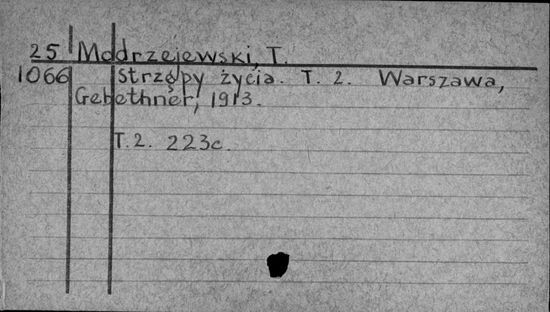 25 Modrzejewski, T.
1066 Strzępy życia. T. 2. Warszawa,
Gebethner, 1913.
T. 2. 223c.